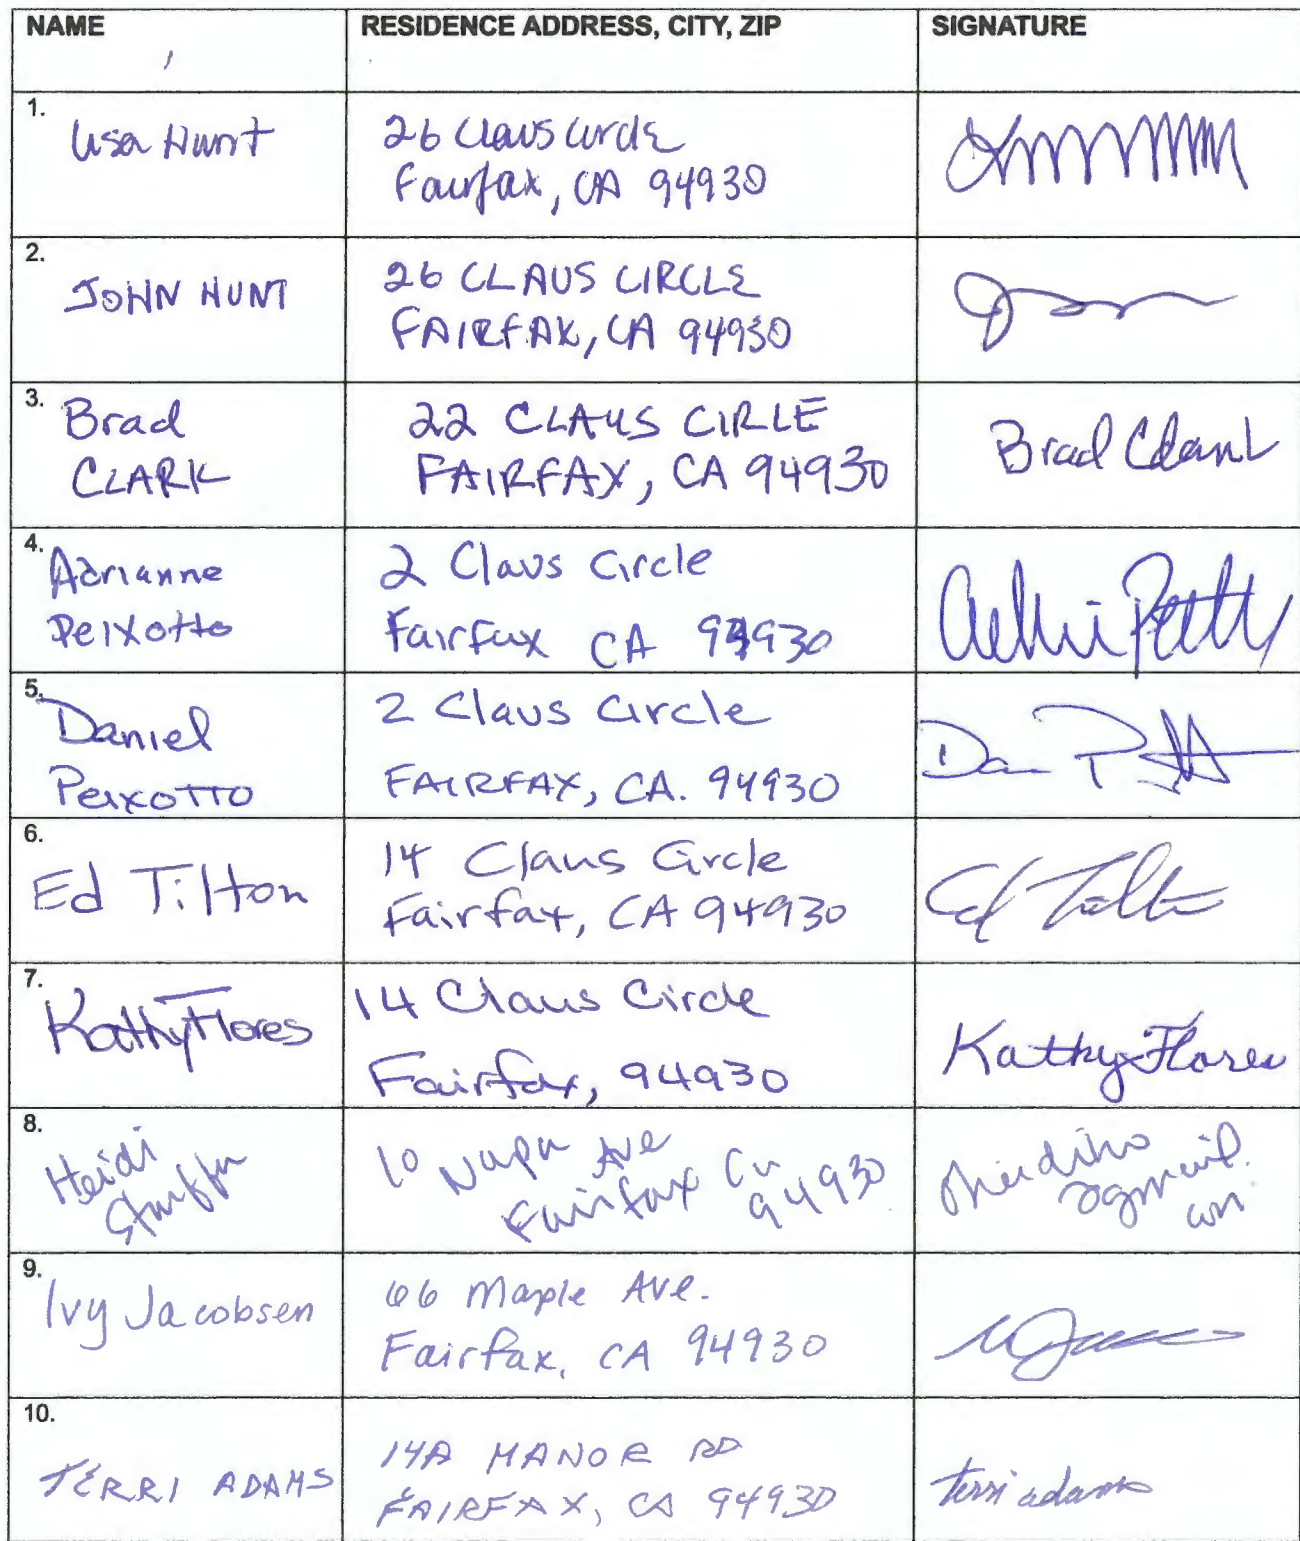 NAME RESIDENCE ADDRESS, CITY, ZIP SIGNATURE
1.
Lisa Hunt
26 Claus Circle
Fairfax, CA 94930
2.
JOHN HUNT
26 CLAUS CIRCLE
FAIRFAX, CA 94930
3.
Brad
CLARK
22 CLAUS CIRLE
FAIRFAX, CA 94930
Brad Clark
4.
Adrianne
Peixotto
2 Claus Circle
Fairfax CA 94930
5.
Daniel
Peixotto
2 Claus Circle
FAIRFAX, CA. 94930
Dan
6.
Ed Tilton
14 Claus Circle
Fairfax, CA 94930
Ed Tilton
7.
Kathy Flores
14 Claus Circle
Fairfax, 94930
Kathy Flores
8.
Heidi
10 Napa Ave
Fairfax Ca
94930
9.
Ivy Jacobsen
66 Maple Ave.
Fairfax, CA 94930
10.
TERRI ADAMS
14A MANOR RD
FAIRFAX, CA 94930
terri adams